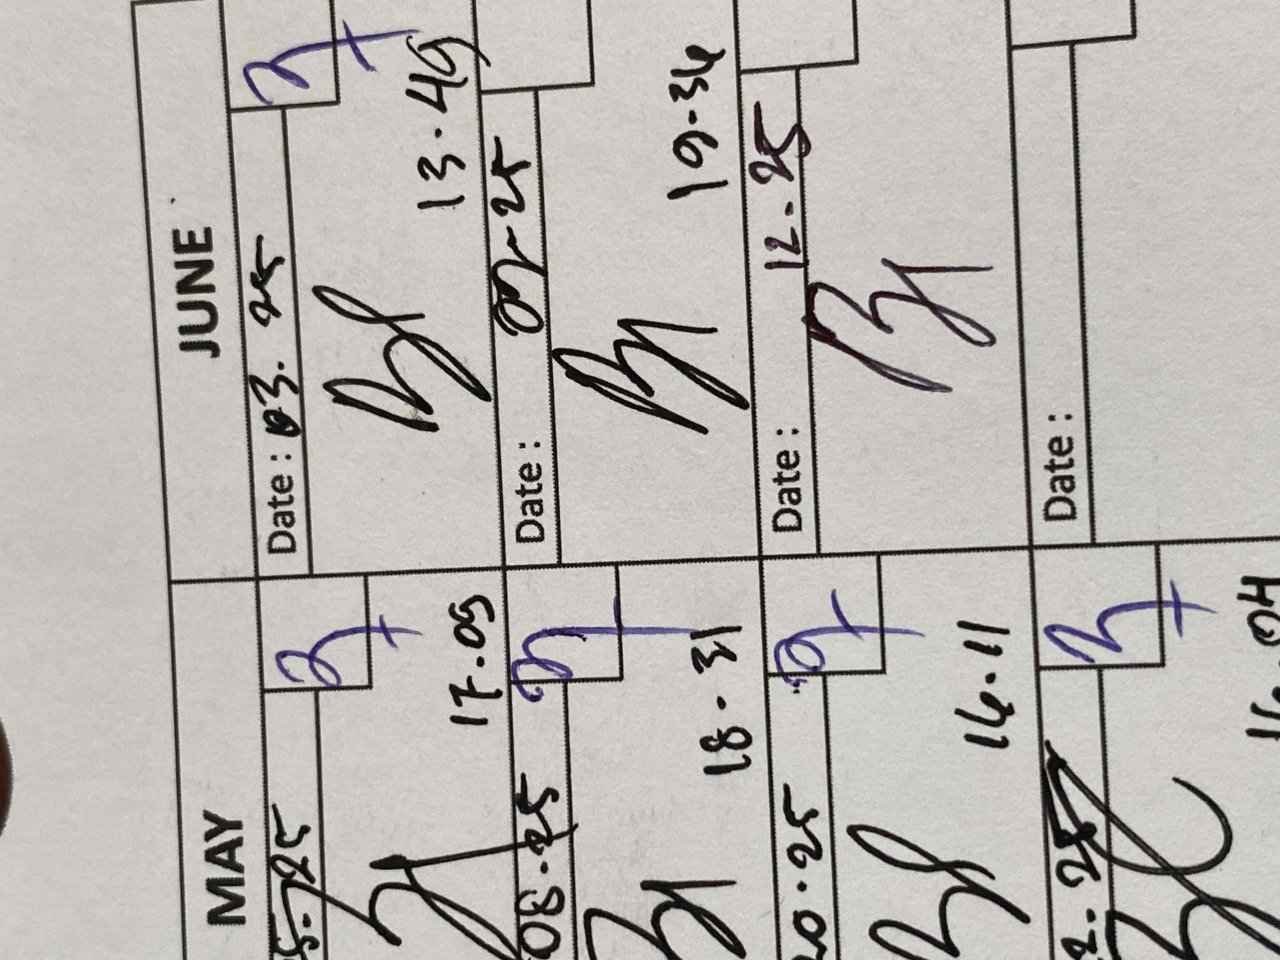 MAY
JUNE
5.25
17.09
Date : 03. 25
13.49
08.25
18.31
Date : 07-25
19.34
20.25
16.11
Date : 12.25
2.25
16.04
Date :